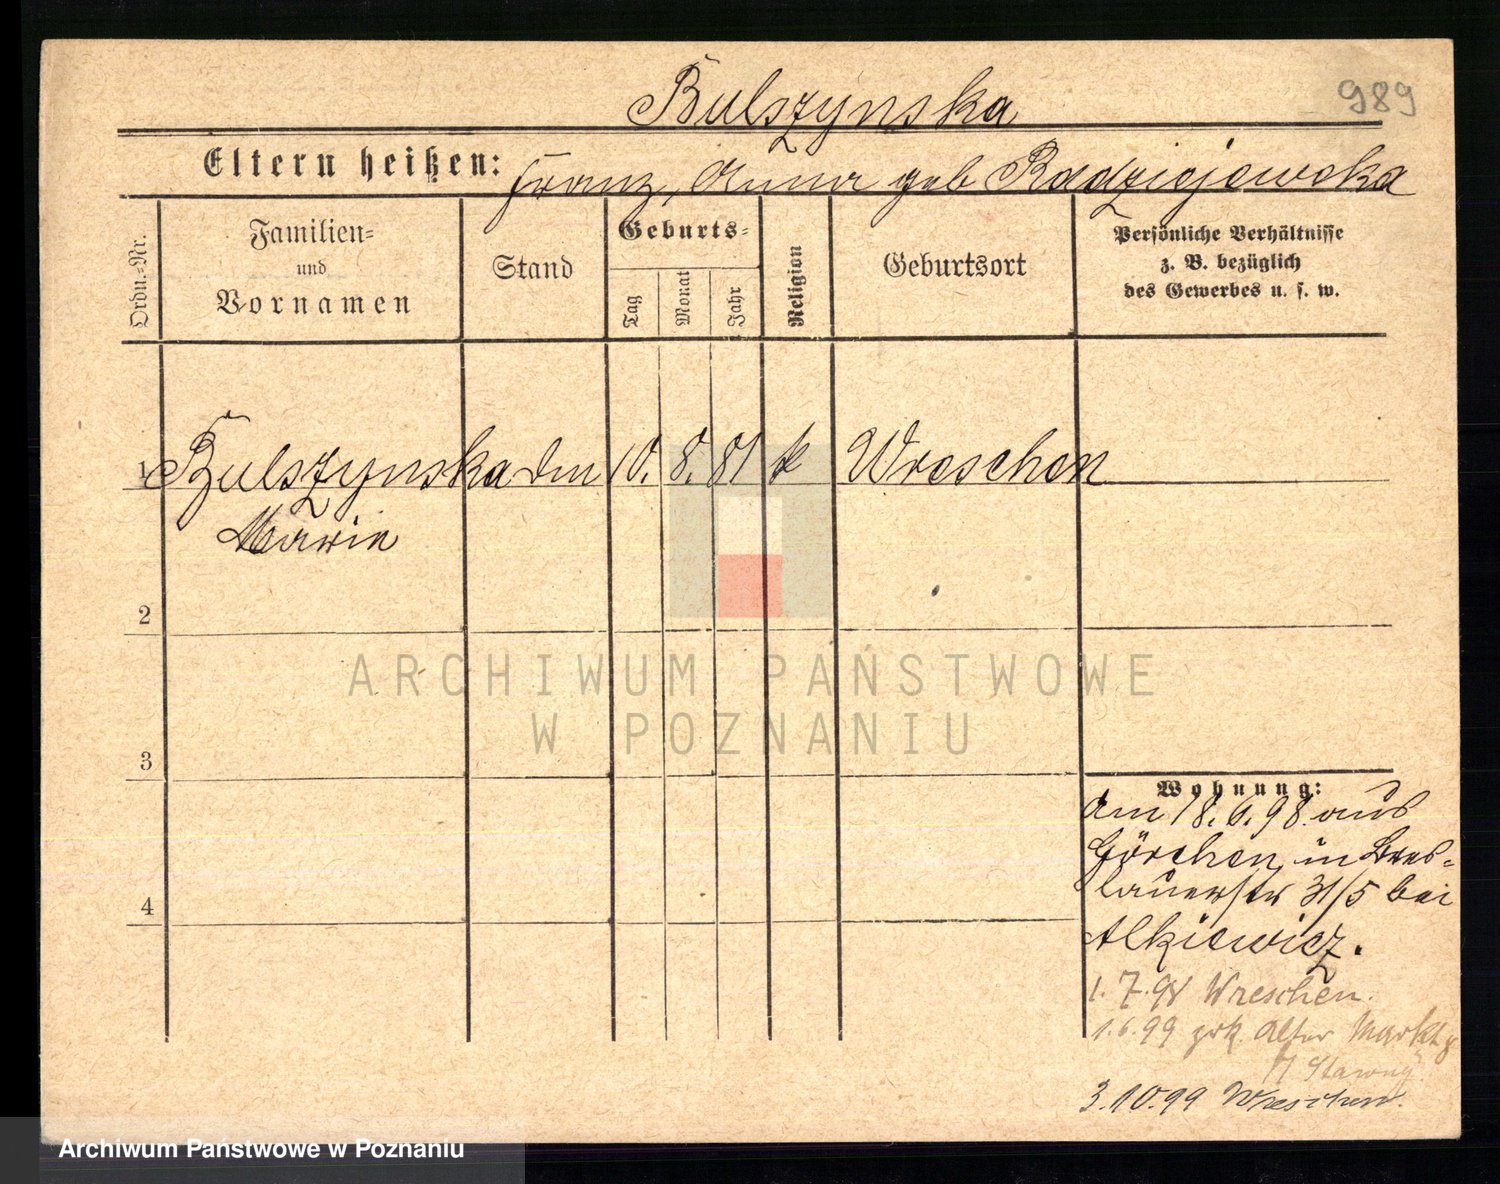 Bulszynska
989
Eltern heißen: Franz, Anna geb Radziejewska
Ordn.-Nr.
Familien-
und
Vornamen
Stand
Geburts-
Tag
Monat
Jahr
Religion
Geburtsort
Persönliche Verhältnisse
z. B. bezüglich
des Gewerbes u. s. w.
1 Bulszynska 10. 8. 81 k Wreschen
Marie
2
3
4
Wohnung:
am 18.6.98. aus
Görchen in Bres-
lauerstr 31/5 bei
Alkiewicz.
1.7.98 Wreschen.
1.6.99 zrk. Alter Markt 8
3.10.99 Wreschen.
ARCHIWUM PAŃSTWOWE
W POZNANIU
Archiwum Państwowe w Poznaniu